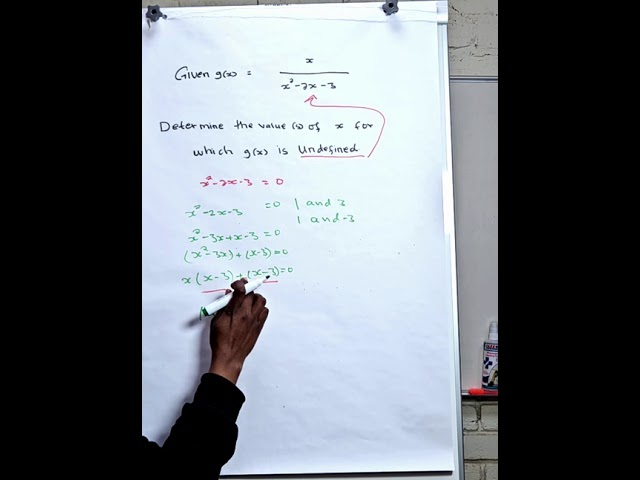 Given g(x) = x / x² - 2x - 3
Determine the value(s) of x for
which g(x) is undefined
x² - 2x - 3 = 0
x² - 2x - 3 = 0 1 and 3
1 and -3
x² - 3x + x - 3 = 0
(x² - 3x) + (x - 3) = 0
x(x - 3) + (x - 3) = 0